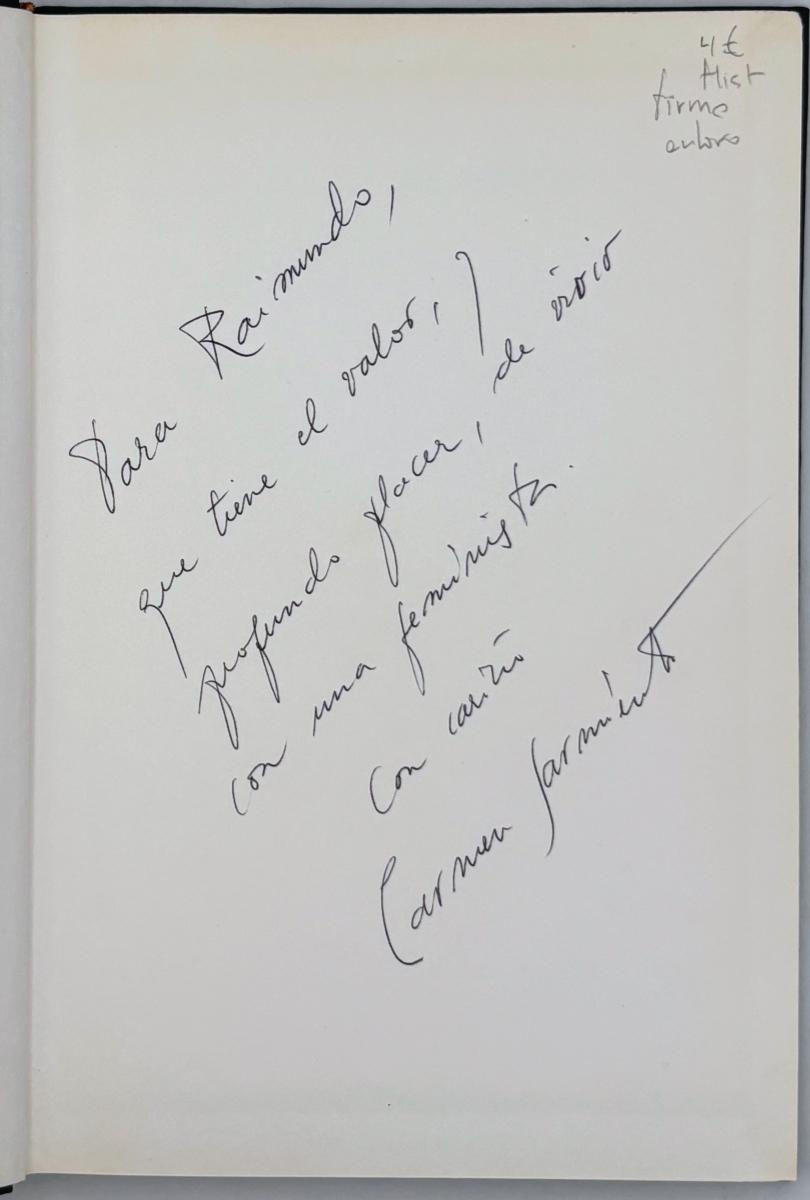 4 €
Hist
firma
autora
Para Raimundo,
que tiene el valor, y
profundo placer, de vivir
con una feminista.
Con cariño
Carmen Sarmiento